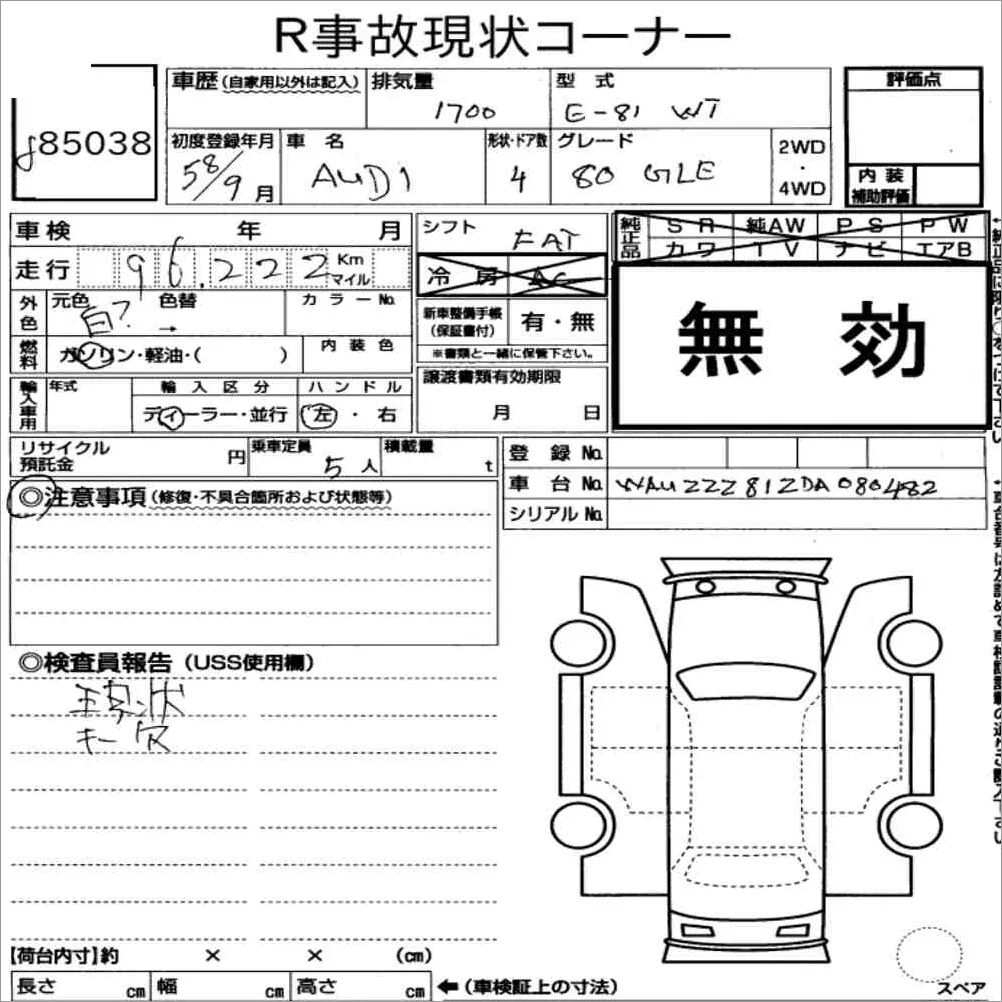 R事故現状コーナー
85038
車歴(自家用以外は記入) 排気量 型式
1700 E-81 WT
評価点
初度登録年月 車名 形状・ドア数 グレード
58/9月 AUDI 4 80 GLE
2WD・4WD
内装補助評価
車検 年 月
シフト FAT
純正品 SR 純AW PS PW
カワ TV ナビ エアB
走行 96,222 Km マイル
冷房 AC
無効
外色 元色 色替 カラーNo.
白? →
新車整備手帳(保証書付) 有・無
※書類と一緒に保管下さい。
燃料 ガソリン・軽油・( ) 内装色
輸入車用 年式 輸入区分 ハンドル
ディーラー・並行 左・右
譲渡書類有効期限
月 日
リサイクル預託金 円 乗車定員 5人 積載量 t
登録No.
車台No. WAUZZZ81ZDA080482
シリアルNo.
◎注意事項(修復・不具合箇所および状態等)
◎検査員報告(USS使用欄)
現状
キー欠
【荷台内寸】約 × × (cm)
長さ cm 幅 cm 高さ cm
←(車検証上の寸法)
スペア